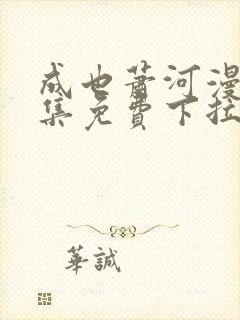 成也萧河漫
集免費下拉
華誠